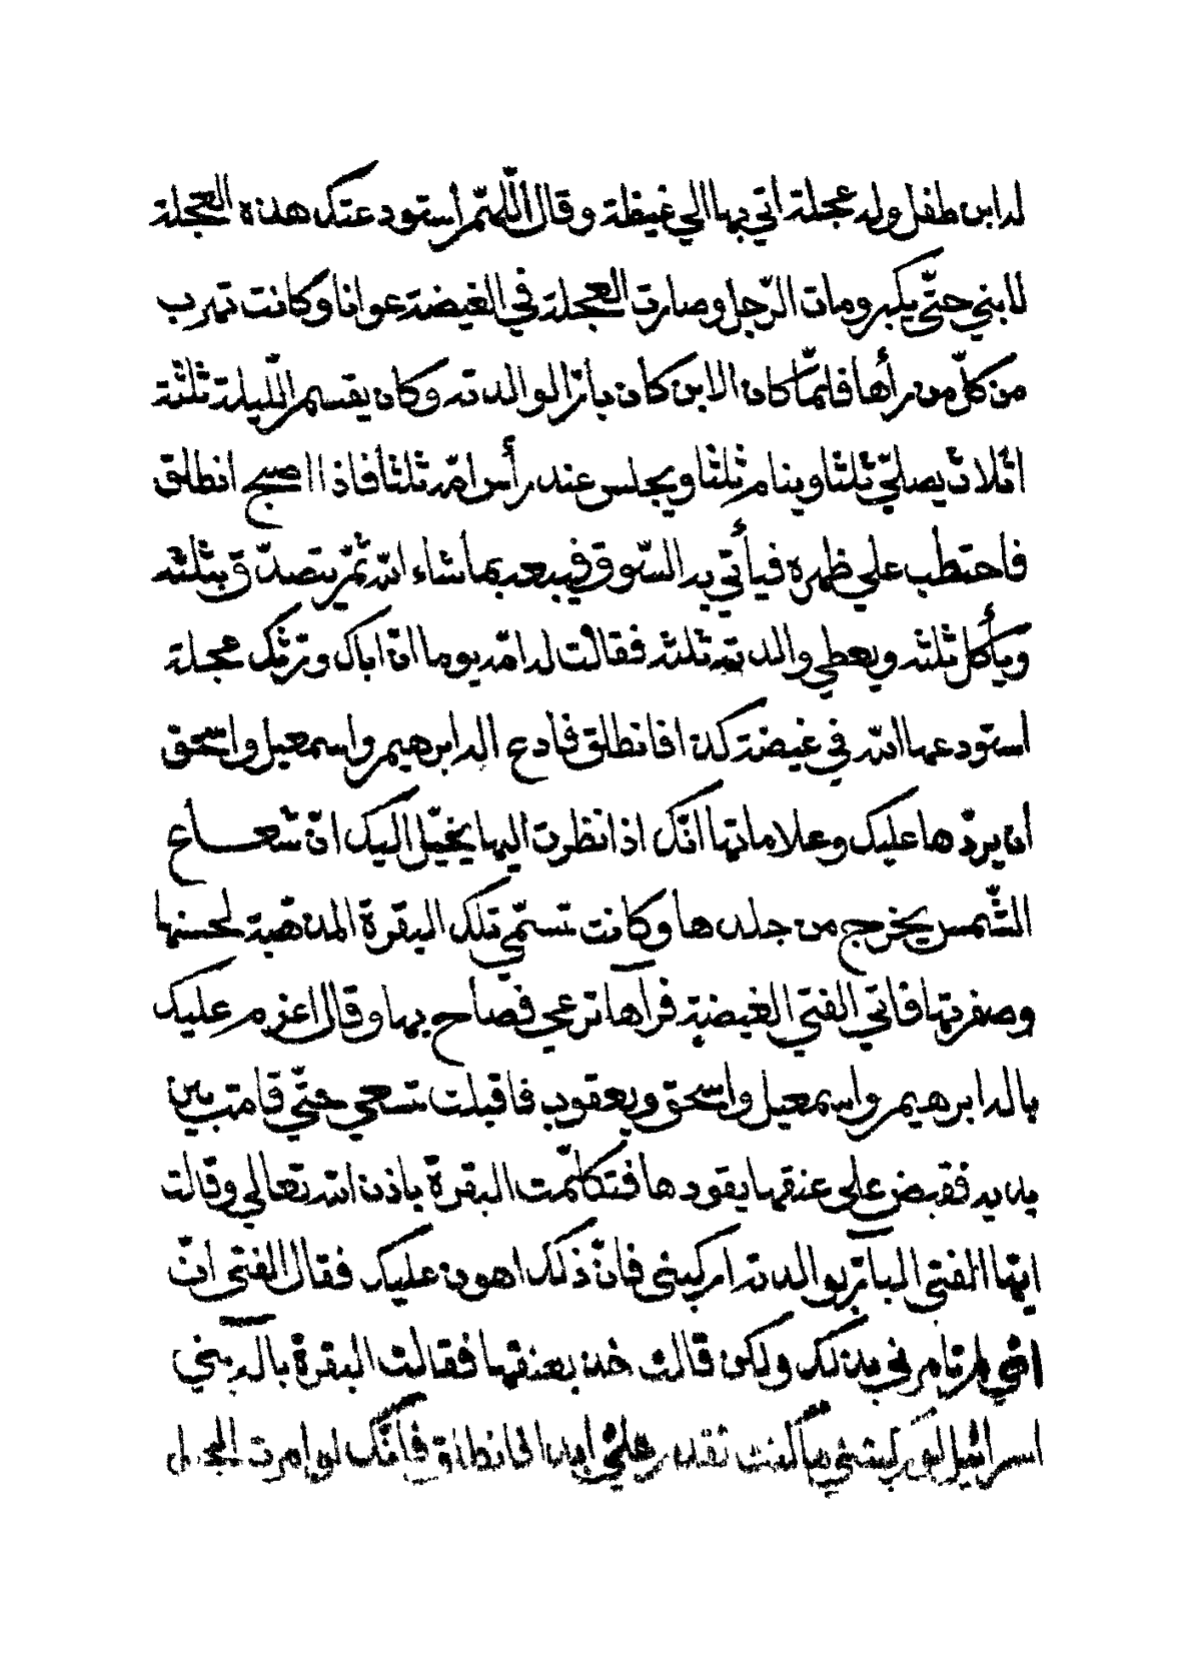 له ابن طفل وله عجلة اتي بها الي غيظة وقال اللّهمّ أستودعتك هذه العجلة
لابني حتّي يكبر ومات الرّجل وصارت العجلة في الغيضة عوانا وكانت تهرب
من كلّ من رأها فلمّا كان الابن كان بارّا لوالدته وكان يقسم اللّيلة ثلثة
اثلاث يصلّي ثلثا وينام ثلثا ويجلس عند رأس امّه ثلثا فاذا اصبح انطلق
فاحتطب علي ظهره فيأتي به السّوق فيبيعه بما شاء الله ثمّ يتصدّق بثلثه
ويأكل ثلثه ويعطي والدته ثلثه فقالت له امّه يوما انّ اباك ورّثك عجلة
استودعها الله في غيضة كذا فانطلق فادع اله ابرهيم واسمعيل واسحق
ان يردّها عليك وعلاماتها انّك اذا نظرت اليها يخيّل اليك انّ شعاع
الشّمس يخرج من جلدها وكانت تسمّي تلك البقرة المذهّبة لحسنها
وصفرتها فاتي الفتي الغيضة فرآها ترعي فصاح بها وقال اعزم عليك
باله ابرهيم واسمعيل واسحق ويعقوب فاقبلت تسعي حتّي قامت بين
يديه فقبض علي عنقها يقودها فتكلّمت البقرة باذن الله تعالي وقالت
ايّها الفتي البارّ بوالدته اركبني فانّ ذلك اهون عليك فقال الفتي انّ
امّي لم تامرني بذلك ولكن قالت خذ بعنقها فقالت البقرة باله بني
اسرائيل لو ركبتني ما كنت تقدر عليّ ابدا فانطلق فانّك لو امرت الجبل